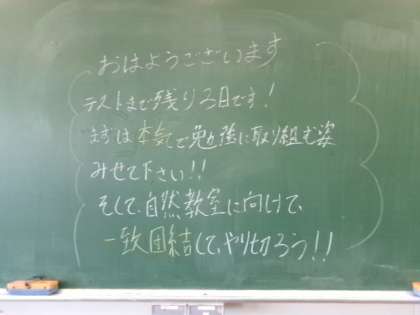 おはようございます
テストまで残り2日です!
まずは本気で勉強に取り組む姿
みせて下さい!!
そして、自然教室に向けて、
一致団結して、やり切ろう!!